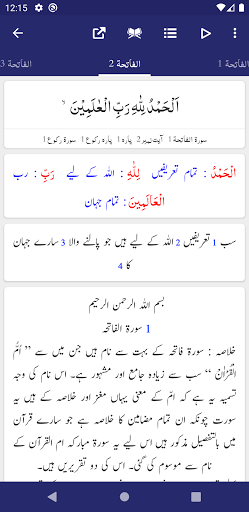 12:15
الفاتحة 1
الفاتحة 2
الفاتحة 3
اَلْحَمْدُ لِلّٰهِ رَبِّ الْعٰلَمِيْنَ
سورۃ الفاتحة 1 آیت نمبر 2 پارہ 1 پارہ رکوع 1 سورۃ رکوع 1
الْحَمْدُ : تمام تعریفیں لِلّٰهِ : اللہ کے لیے رَبِّ : رب
الْعَالَمِينَ : تمام جہان
سب 1 تعریفیں 2 اللہ کے لیے ہیں جو پالنے والا 3 سارے جہان
کا 4
بسم اللہ الرحمن الرحیم
1 سورۃ الفاتحہ
خلاصہ : سورۃ فاتحہ کے بہت سے نام ہیں جن میں سے ” اُمُّ
الْقُرْآن “ سب سے زیادہ جامع اور مشہور ہے۔ اس نام کی وجہ
تسمیہ یہ ہے کہ امّ کے معنی یہاں مغز اور خلاصہ کے ہیں یہ
سورت چونکہ ان تمام مضامین کا خلاصہ ہے جو سارے قرآن
میں بالتفصیل مذکور ہیں اس لیے یہ سورۃ مبارکہ ام القرآن کے
نام سے موسوم کی گئی۔ اس کی دو تقریریں ہیں۔